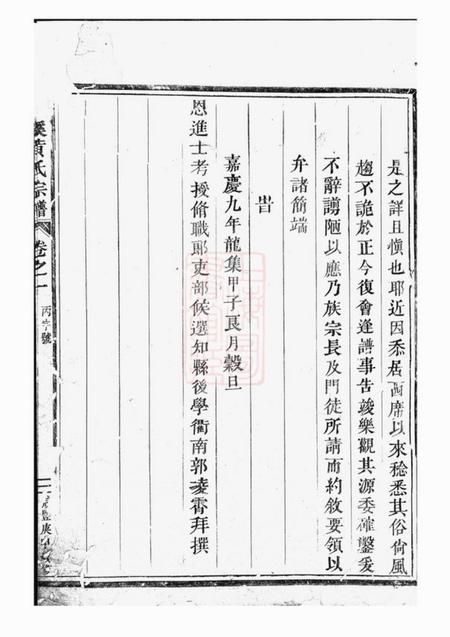 是之詳且慎也耶近因忝居西席以來稔悉其俗尙風
趨不詭於正今復會逢譜事告竣樂觀其源委確鑿爰
不辭謭陋以應乃族宗長及門徒所請而約敘要領以
弁諸簡端
旹
嘉慶九年龍集甲子艮月穀旦
恩進士考授脩職郎吏部候選知縣後學衢南郭凌霄拜撰
溪黃氏宗譜 卷之一 丙字號